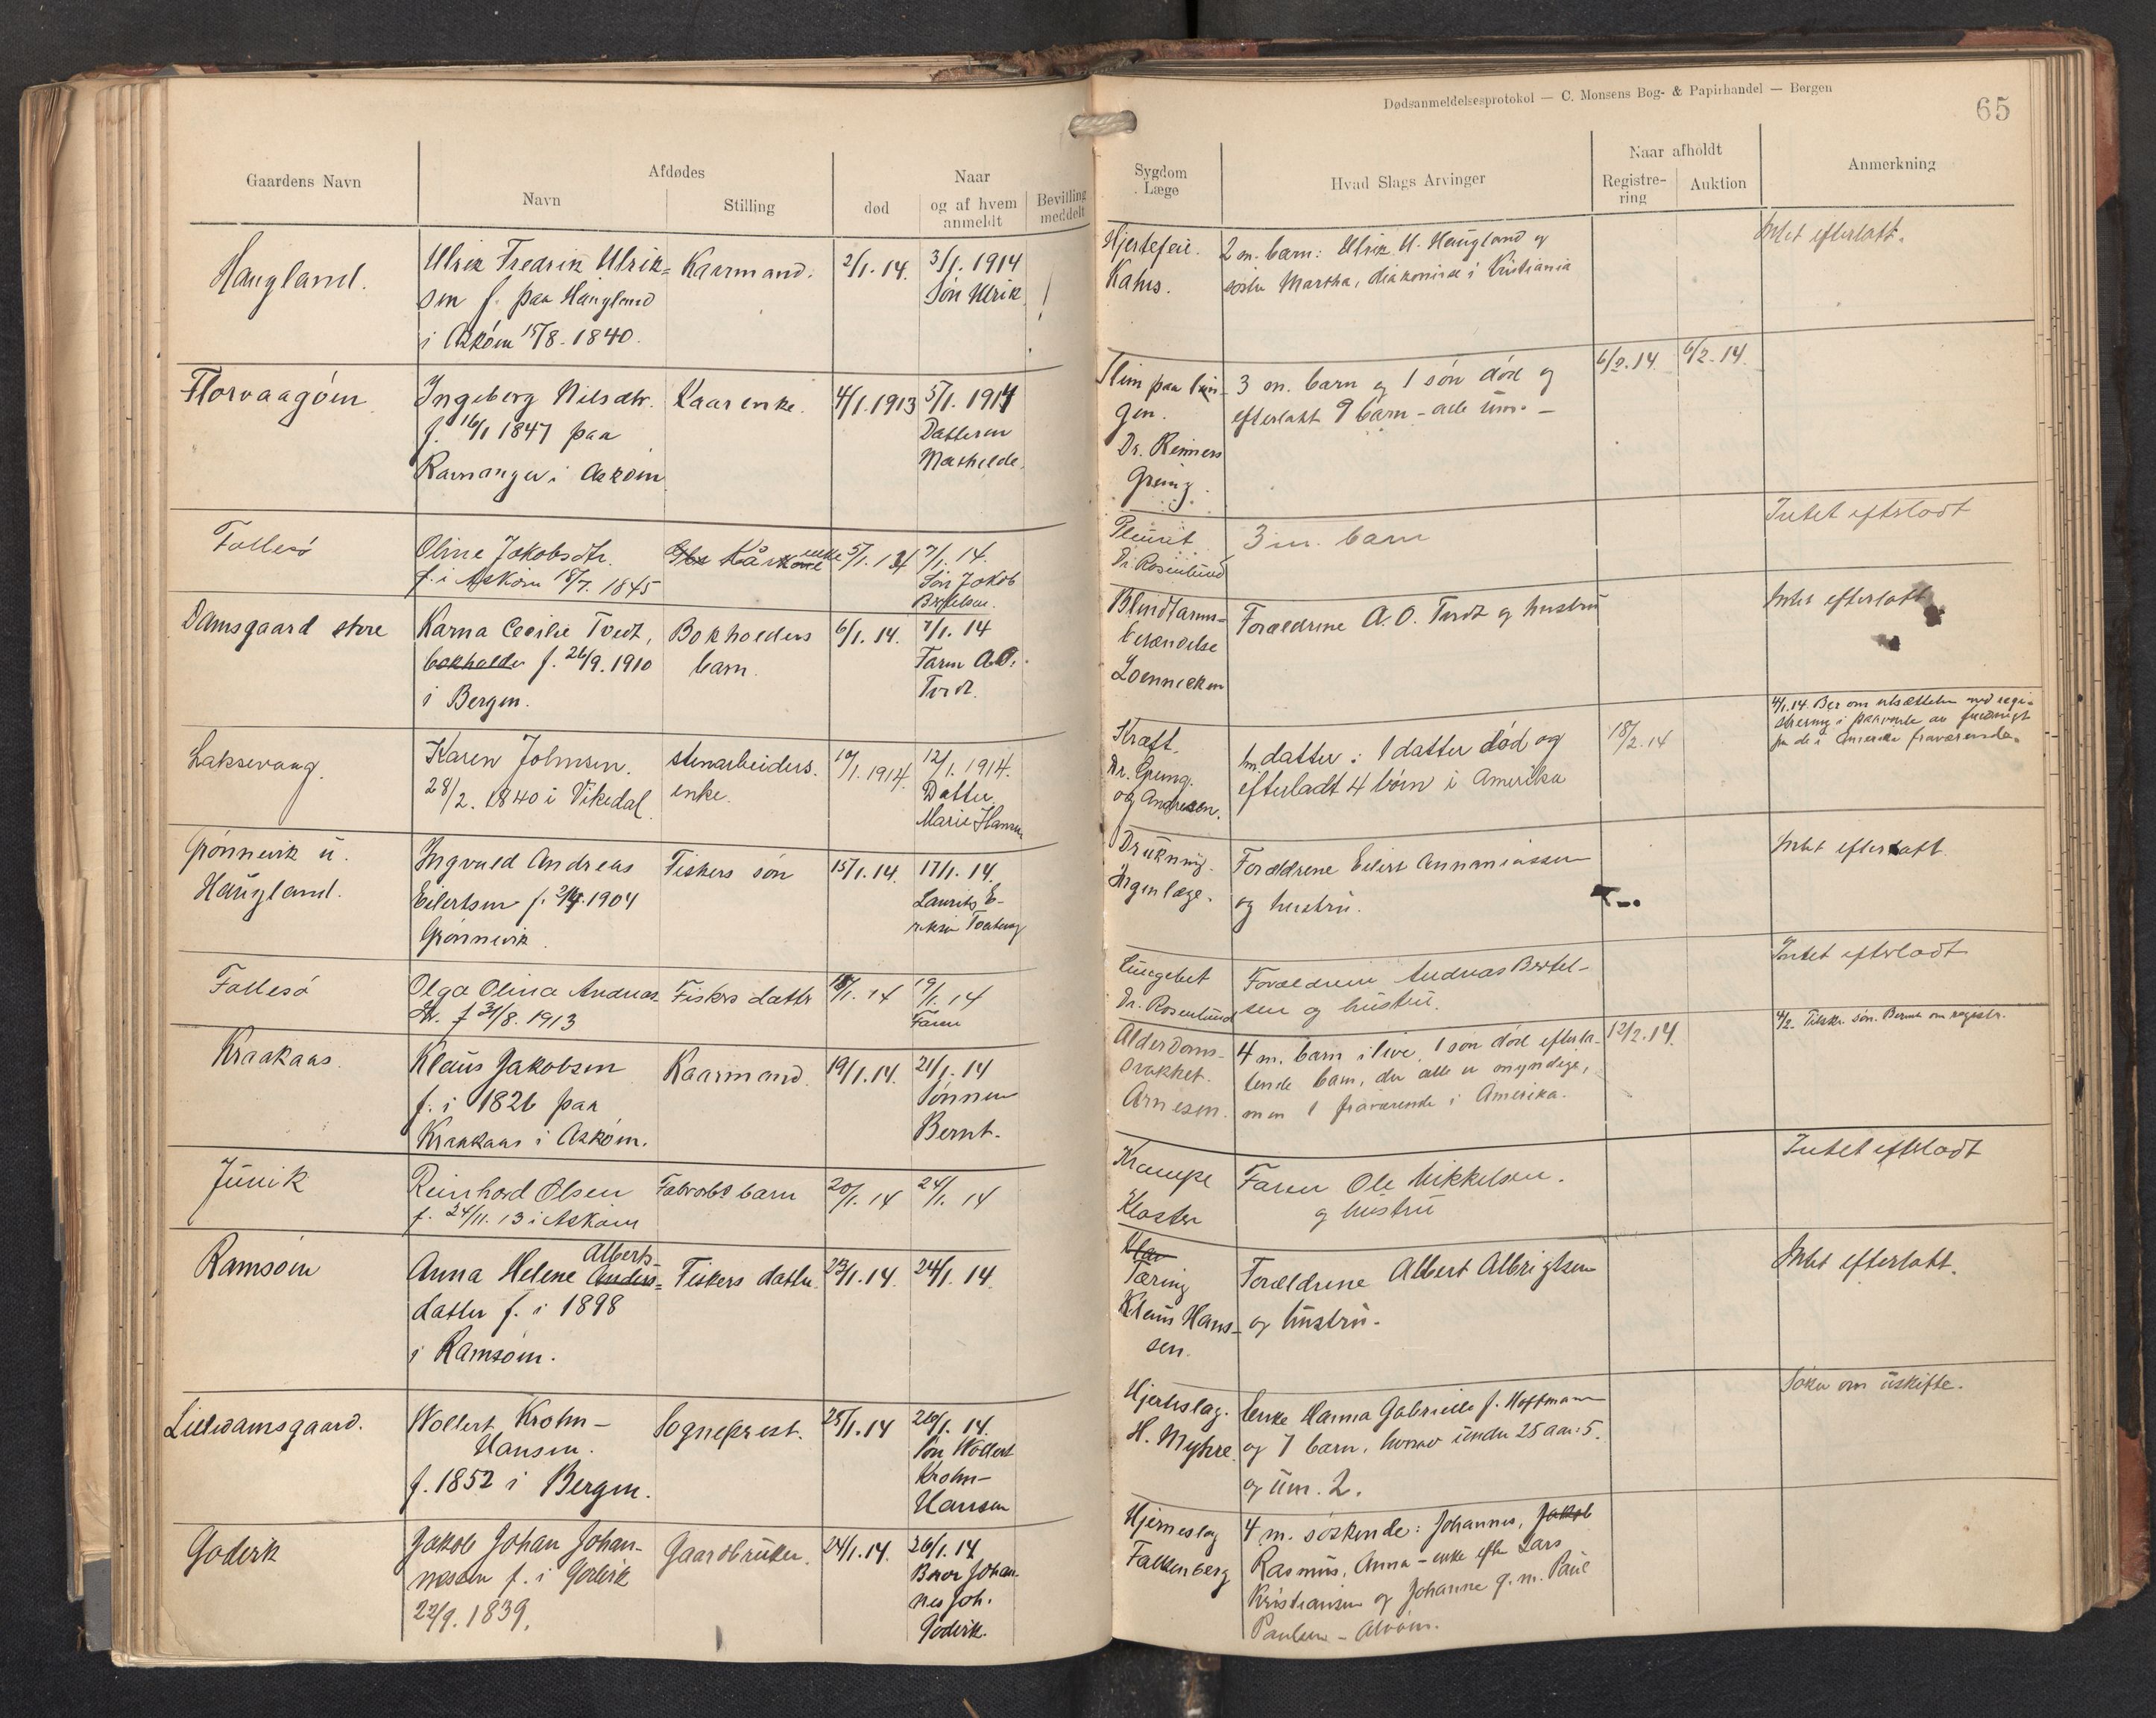 Dødsanmeldelsesprotokol — C. Monsens Bog- & Papirhandel — Bergen
65
Gaardens Navn
Afdødes
Navn
Stilling
Naar
død
og af hvem
anmeldt
Bevilling
meddelt
Sygdom
Læge
Hvad Slags Arvinger
Naar afholdt
Registre-
ring
Auktion
Anmerkning
Haugland.
Ulrik Fredrik Ulrik=
sen f. paa Haugland
i Askøen 15/8. 1840.
Kaarmand.
2/1. 14.
3/1. 1914
Søn Ulrik
Hjertefeil.
Kahrs.
2 m. barn: Ulrik U. Haugland og
søster Martha, diakonisse i Kristiania
Intet efterlatt.
Florvaagøen
Ingeborg Nilsdtr.
f. 16/1 1847 paa
Ramanger i Askøen
Kaarenke.
4/1. 1913
5/1. 1914
Datteren
Mathilde.
Slim paa lun-
gen.
Dr. Reimers
Greimg.
3 m. barn og 1 søn død og
efterlatt 9 barn – alle um. –
6/2. 14.
6/2. 14.
Follesø
Oline Jakobsdtr.
f. i Askøen 18/7. 1845
Kårkone enke
5/1. 14
7/1. 14.
Søn Jakob
Bertelsen.
Pleurit
Dr. Rosenlund
3 m. barn
Intet efterladt
Damsgaard store
Karna Cecilie Tvedt,
bokholder f. 26/9. 1910
i Bergen.
Bokholders
barn.
6/1. 14.
7/1. 14
Faren A.O.
Tvedt.
Blindtarms=
betændelse
Loennecken
Forældrene A. O. Tvedt og hustru
Intet efterlatt
Laksevaag.
Karen Johnsen.
28/2. 1840 i Vikedal
stenarbeiders.
enke.
10/1. 1914.
12/1. 1914.
Datter
Marie Hansen
Kræft.
Dr. Greung.
og Andresen.
1 m. datter: 1 datter død og
efterladt 4 børn i Amerika
18/2. 14
4/1. 14. Ber om utsættelse med regi-
strering i paavente av fuldmagt
fra de i Amerika fraværende.
Grønnevik u.
Haugland.
Ingvald Andreas
Eilertsen f. 1904
Grønnevik.
Fiskers søn
15/1. 14.
17/1. 14.
Laurits E-
riksen Tveiterog
Drukning.
Ingen læge.
Forældrene Eilert Annaniassen
og hustru.
Intet efterlatt.
Follesø
Olga Olina Andreas
dtr. f 31/8. 1913
Fiskers datter
18/1. 14
19/1. 14
Faren
Lungebet
Dr. Rosenlund
Forældrene Andreas Bertel-
sen og hustru.
Intet efterladt
Kraakaas.
Klaus Jakobsen
f. i 1826 paa
Kraakaas i Askøen.
Kaarmand.
19/1. 14.
21/1. 14
Sønnen
Bernt.
Alderdoms-
svakhet.
Arnesen.
4 m. barn i live, 1 søn død efterla-
tende barn, der alle er myndige,
men 1 fraværende i Amerika.
12/2. 14.
4/2. Tilskr. søn. Bernt om registr.
Juvik
Reinhard Olsen
f. 24/11. 13 i Askøen
Fabrarbs barn
20/1. 14
24/1. 14
Krampe
Kloster
Faren Ole Mikkelsen.
og hustru
Intet efterladt
Ramsøen
Alberts-
Anna Helene Anders=
datter f. i 1898
i Ramsøen.
Fiskers datter.
23/1. 14.
24/1. 14
Tæring
Klaus Hans-
sen.
Forældrene Albert Albrigtsen
og hustru.
Intet efterlatt.
Lilledamsgaard.
Wollert Krohn-
Hansen.
f. 1852 i Bergen.
Sogneprest.
25/1. 14
26/1. 14.
Søn Wollert
Krohn-
Hansen
Hjerteslag.
H. Myhre.
Enke Hanna Gabrielle f. Hoffmann
og 7 barn, hvorav under 25 aar: 5.
og um. 2.
Søker om uskifte.
Goderk
Jakob Johan Johan-
nessen f. i Goderk
22/9. 1839.
Gaardbruker.
24/1. 14.
26/1. 14
Bror Johan-
nes Joh.
Goderk.
Hjerneslag
Falkenberg
4 m. søskende: Johannes, Jakob
Rasmus, Anna – enke efter Lars
Kristiansen og Johanne g. m. Paul
Paulsen – Alvøen.